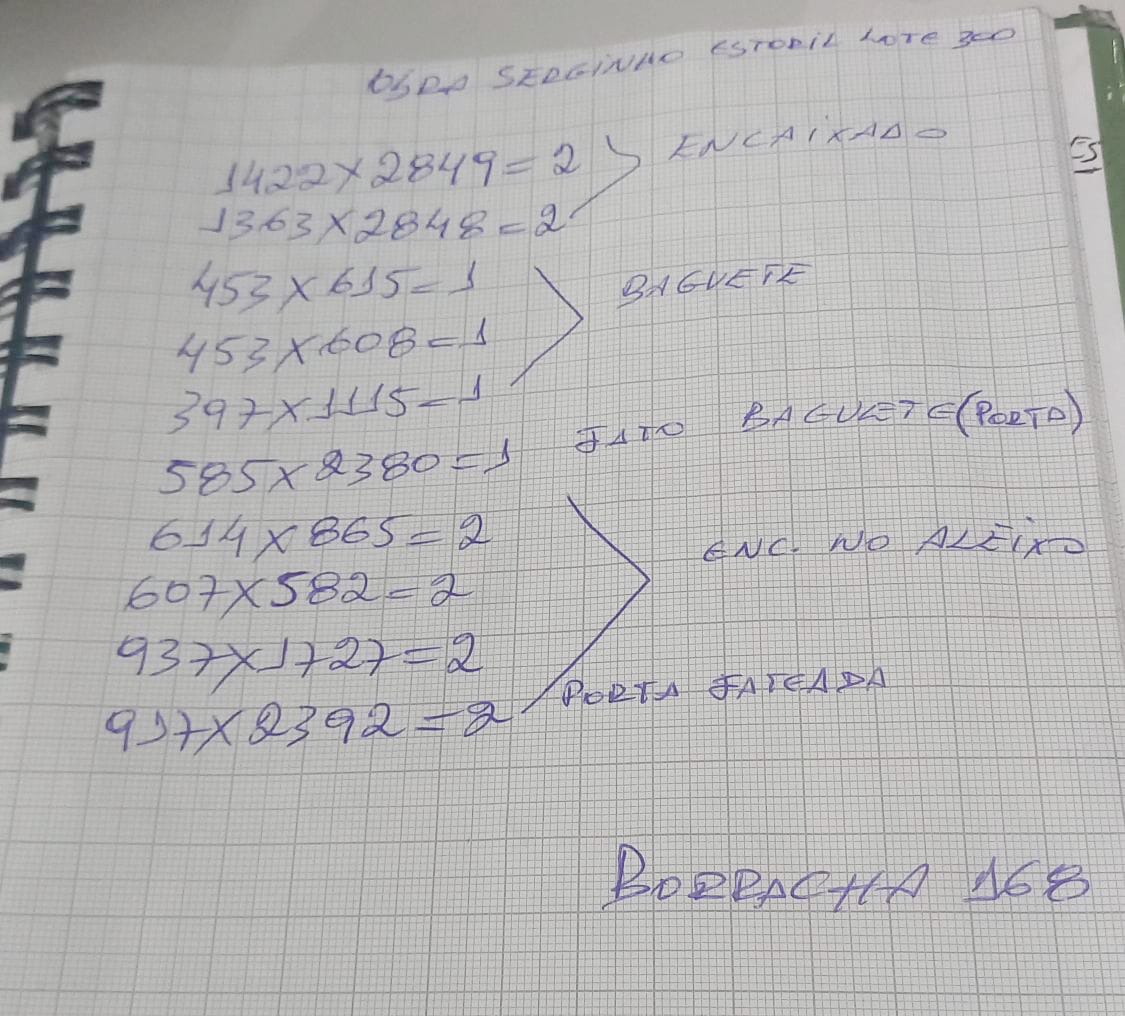 OBRA SERGINHO ESTORIL LOTE 300
1422X2849=2 ENCAIXADO
1363X2848=2
453X615=1 BAGUETE
453X608=1
397X1115=1
585X2380=1 JATO BAGUETE (PORTA)
614X865=2
607X582=2 ENC. NO ALEIXO
937X1727=2
937X2392=2 PORTA JATEADA
BORRACHA 168
ES